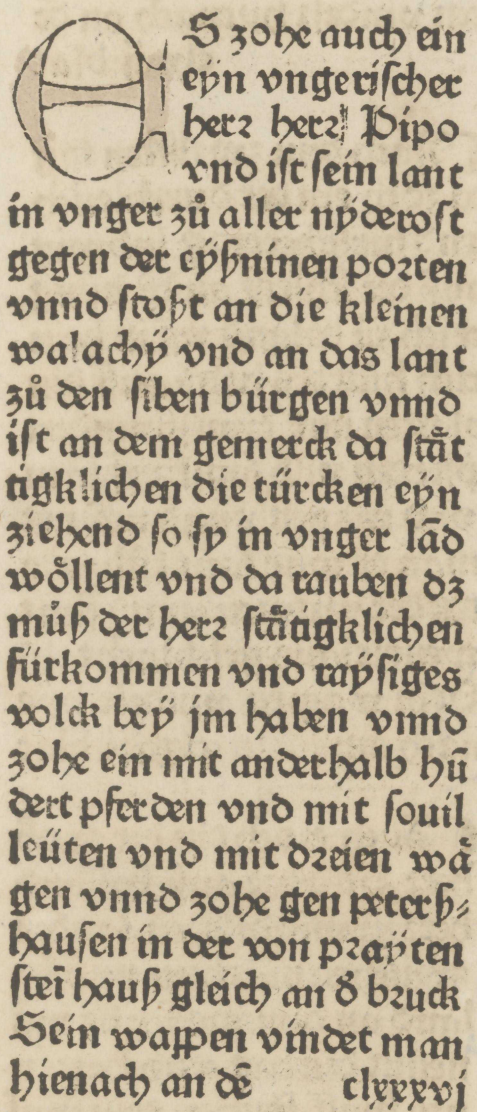 ES zohe auch ein
eyn vngerischer
herr herr Pipo
vnd ist sein lant
in vnger zů aller nÿderost
gegen der eÿßninen porten
vnnd stoßt an die kleinen
walachÿ vnd an das lant
zů den siben bürgen vnnd
ist an dem gemerck da stãt
tigklichen die türcken eÿn
ziehend so sy in vnger lãd
woͤllent vnd da rauben dz
můß der herr staͤtigklichen
fürkommen vnd raÿsiges
volck beÿ jm haben vnnd
zohe ein mit anderhalb hũ
dert pferden vnd mit souil
leüten vnd mit dreien waͤ
gen vnnd zohe gen peterß⸗
hausen in der von praÿten
stei̅ hauß gleich an d̛ bruck
Sein wappen vindet man
hienach an dẽ clxxxvj